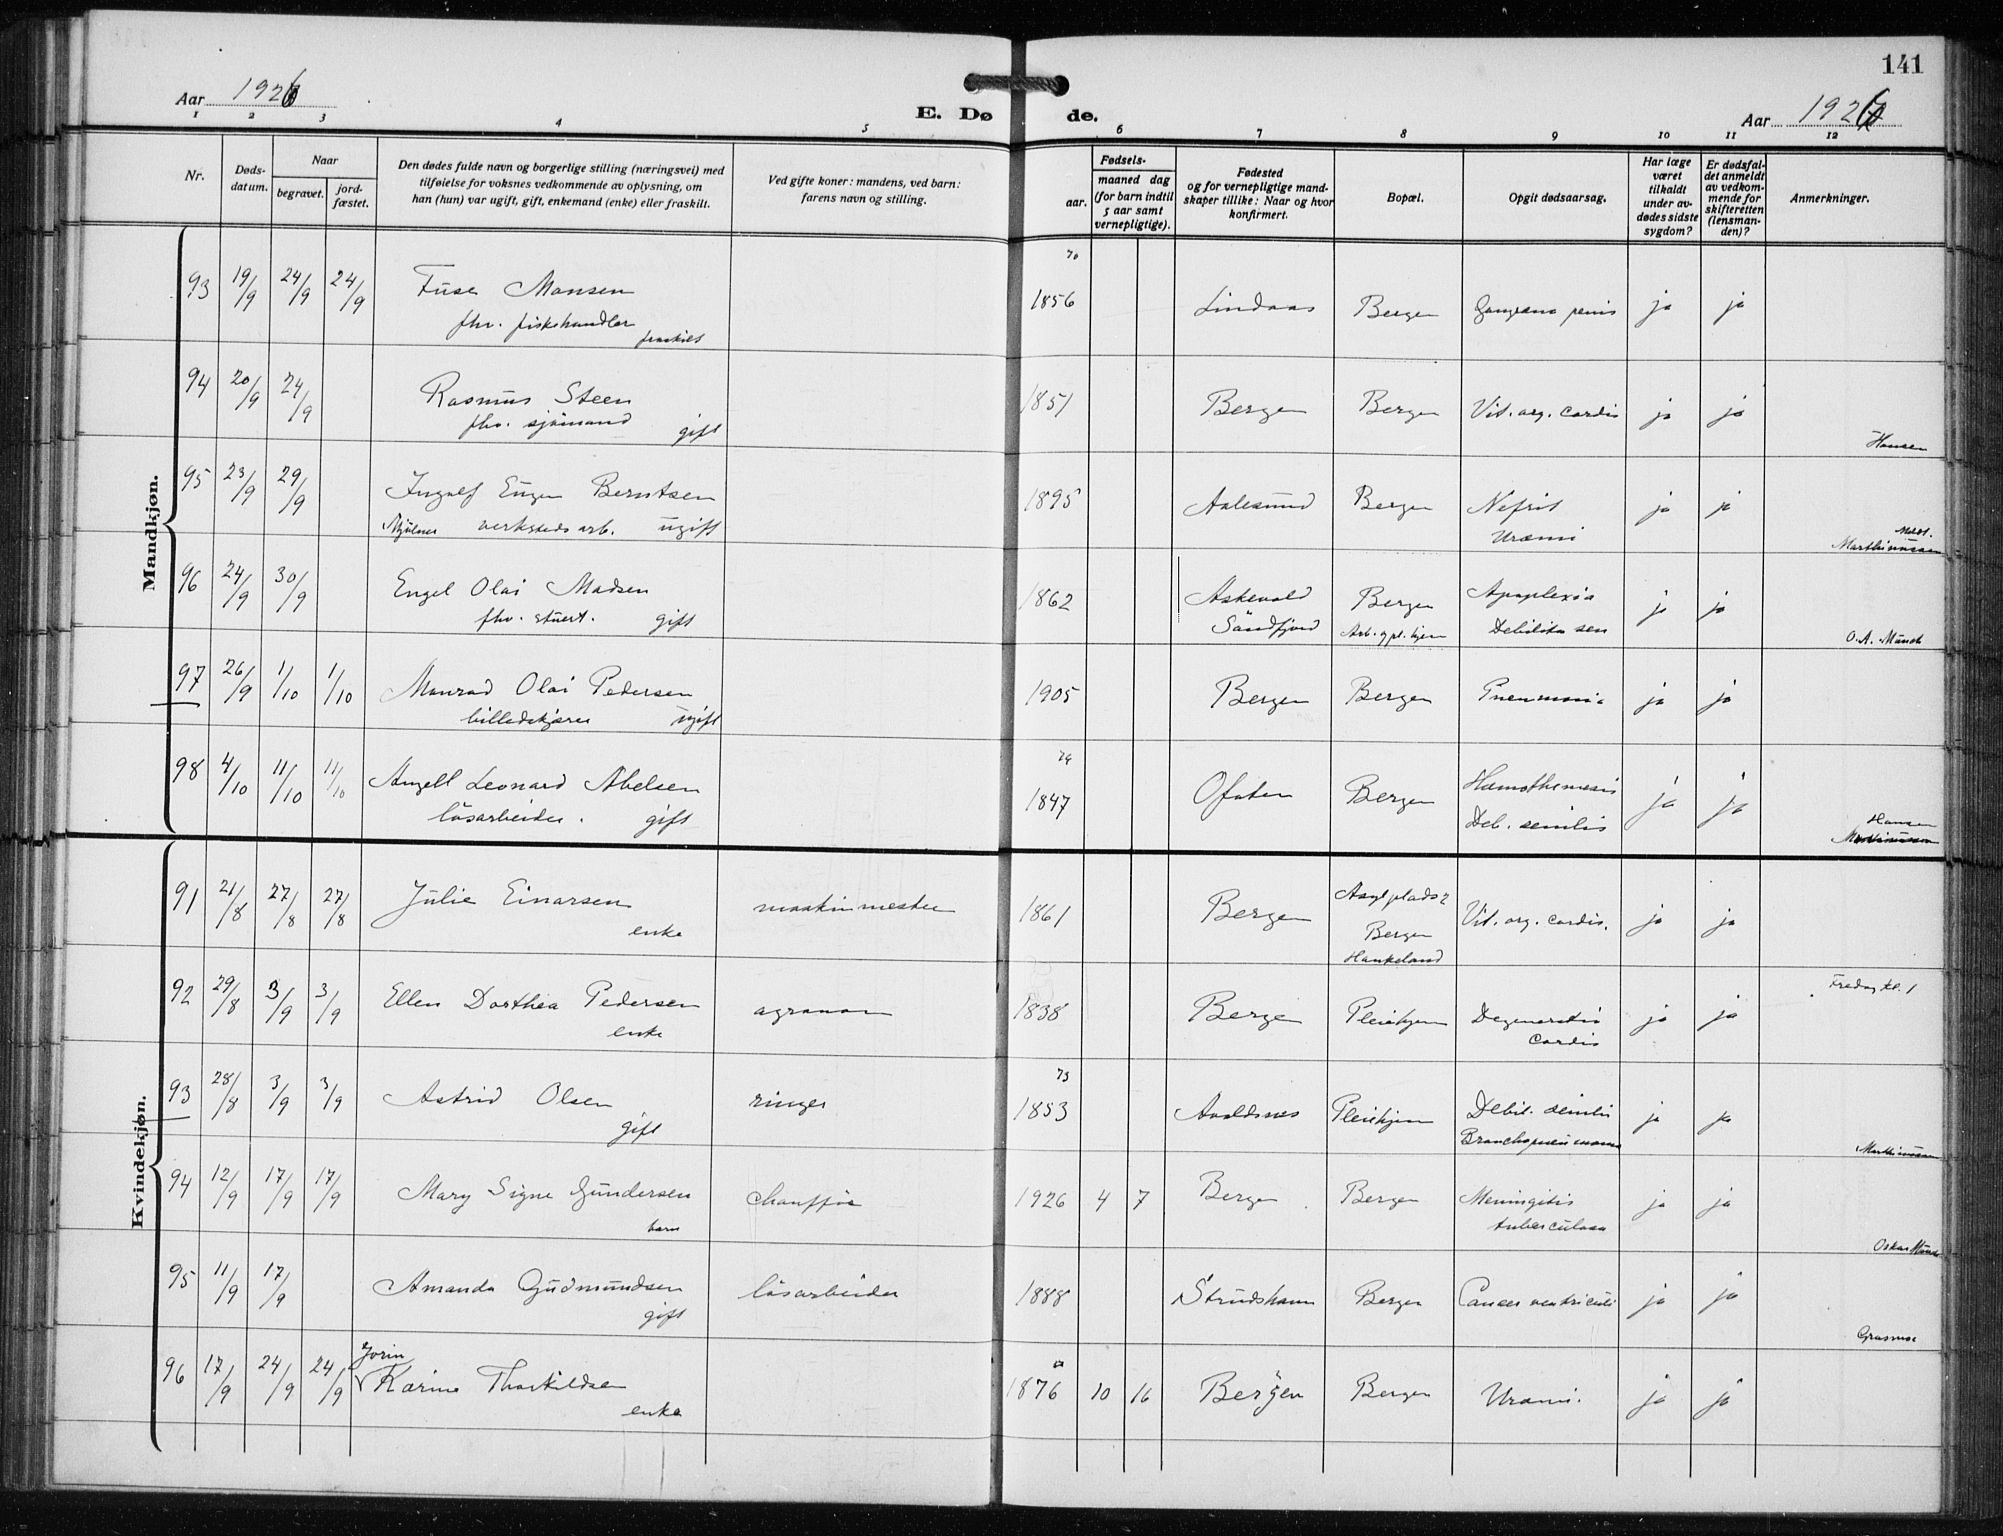 141
Aar 1926
E. Døde.
Aar 1926
1 2 3 4 5 6 7 8 9 10 11 12
Nr.
Døds-
datum.
Naar
begravet.
jord-
fæstet.
Den dødes fulde navn og borgerlige stilling (næringsvei) med
tilføielse for voksnes vedkommende av oplysning, om
han (hun) var ugift, gift, enkemand (enke) eller fraskilt.
Ved gifte koner: mandens, ved barn:
farens navn og stilling.
Fødsels-
aar.
maaned dag
(for barn indtil
5 aar samt
vernepligtige).
Fødested
og for vernepligtige mand-
skaper tillike: Naar og hvor
konfirmert.
Bopæl.
Opgit dødsaarsag.
Har læge
været
tilkaldt
under av-
dødes sidste
sygdom?
Er dødsfal-
det anmeldt
av vedkom-
mende for
skifteretten
(lensman-
den)?
Anmerkninger.
Mandkjøn.
93 19/9 24/9 24/9 Fuse Monsen 70 1856 Lindaas Bergen Gangræna penis ja ja
fhv. fiskehandler fraskilt
94 20/9 24/9 Rasmus Steen 1851 Bergen Bergen Vit. org. cordis ja ja
fhv. sjömand gift Hansen
95 23/9 29/9 Ingolf Eugen Berntsen 1895 Aalesund Bergen Nefrit ja ja
verkstedsarb. ugift Uræmi Marthinussen
96 24/9 30/9 Engel Olai Madsen 1862 Askevold Bergen Apoplexia ja ja
fhv. stuert. gift Söndfjord Arb. og pl. hjem Debilitas sen O. A. Munch
97 26/9 1/10 1/10 Monrad Olai Pedersen 1905 Bergen Bergen Pneumonia ja ja
billedskjærer ugift
98 4/10 11/10 11/10 Angell Leonard Abelsen 1847 Ofoten Bergen Hæmathemesis ja ja
lösarbeider. gift Deb. senilis Hansen
Kvindekjøn.
91 21/8 27/8 27/8 Julie Einarsen maskinmester 1861 Bergen Asylplads 2 Vit. org. cordis. ja ja
enke Bergen
Haukeland
92 29/8 3/9 3/9 Ellen Dorthea Pedersen agronom 1838 Bergen Pleiehjem Degeneratio ja ja Fredag kl. 1
enke cordis
93 28/8 3/9 3/9 Astrid Olsen ringer 73 1853 Avaldsnes Pleiehjem Debil. senilis ja ja
gift Bronchopneumonia Marthinussen
94 12/9 17/9 17/9 Mary Signe Gundersen chauffør 1926 4 7 Bergen Bergen Meningitis ja ja
barn tuberculosa Oskar Munch
95 11/9 17/9 Amanda Gudmundsen lösarbeider 1888 Strudshavn Bergen Cancer ventriculi ja ja
gift Grasmoe
96 17/9 24/9 24/9 Jorin
Karine Thorkildsen 1876 10 16 Bergen Bergen Uræmi. ja ja
enke